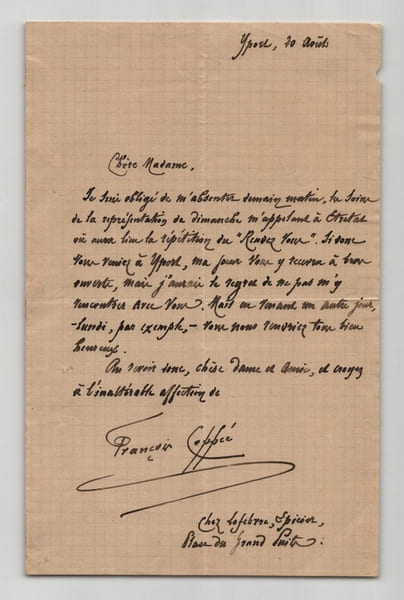 Yport, 20 Août
Chère Madame,
Je suis obligé de m'absenter demain matin, les soins
de la représentation de dimanche m'appelant à Etretat
où aura lieu la répétition du "Rendez Vous". Si donc
vous veniez à Yport, ma sœur vous y recevra à bras
ouverts, mais j'aurais le regret de ne pas m'y
rencontrer avec vous. Mais en venant un autre jour,
- lundi, par exemple, - vous nous rendriez tous bien
heureux.
Au revoir donc, chère dame et amie, et croyez
à l'inaltérable affection de
François Coppée
Chez Lefebvre, Epicier,
Place du Grand Puits.